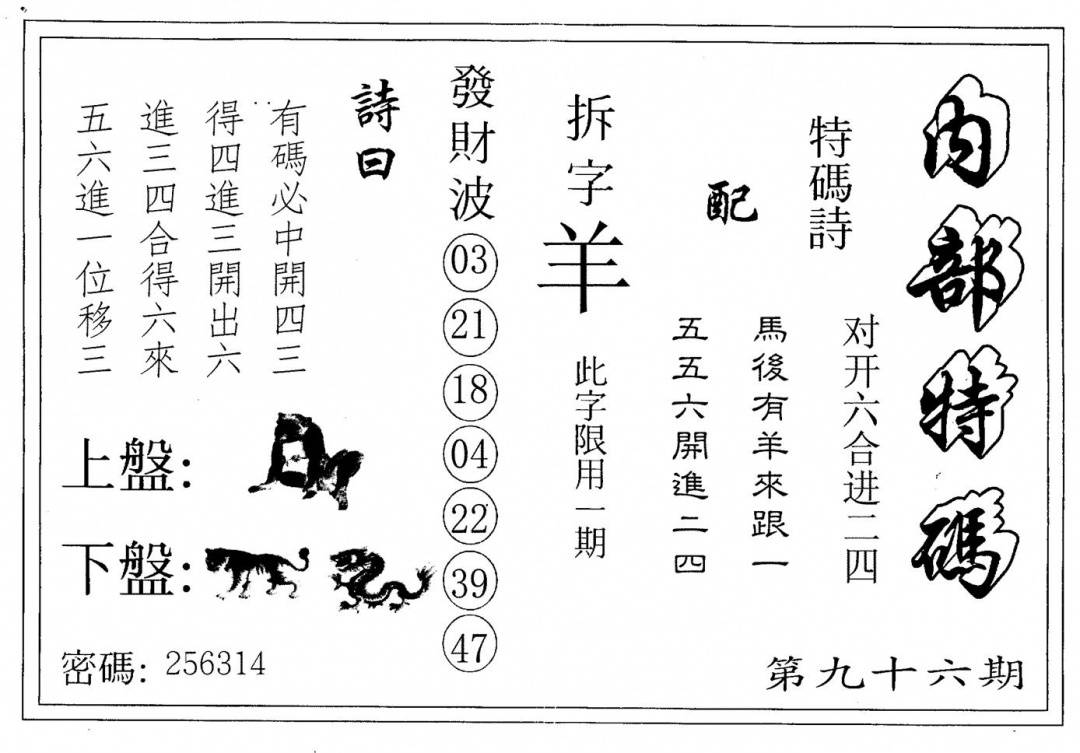 内部特碼
第九十六期
特碼詩
对开六合进二四
配
馬後有羊來跟一
五五六開進二四
拆字
羊
此字限用一期
發財波
03
21
18
04
22
39
47
詩曰
有碼必中開四三
得四進三開出六
進三四合得六來
五六進一位移三
上盤:
下盤:
密碼: 256314